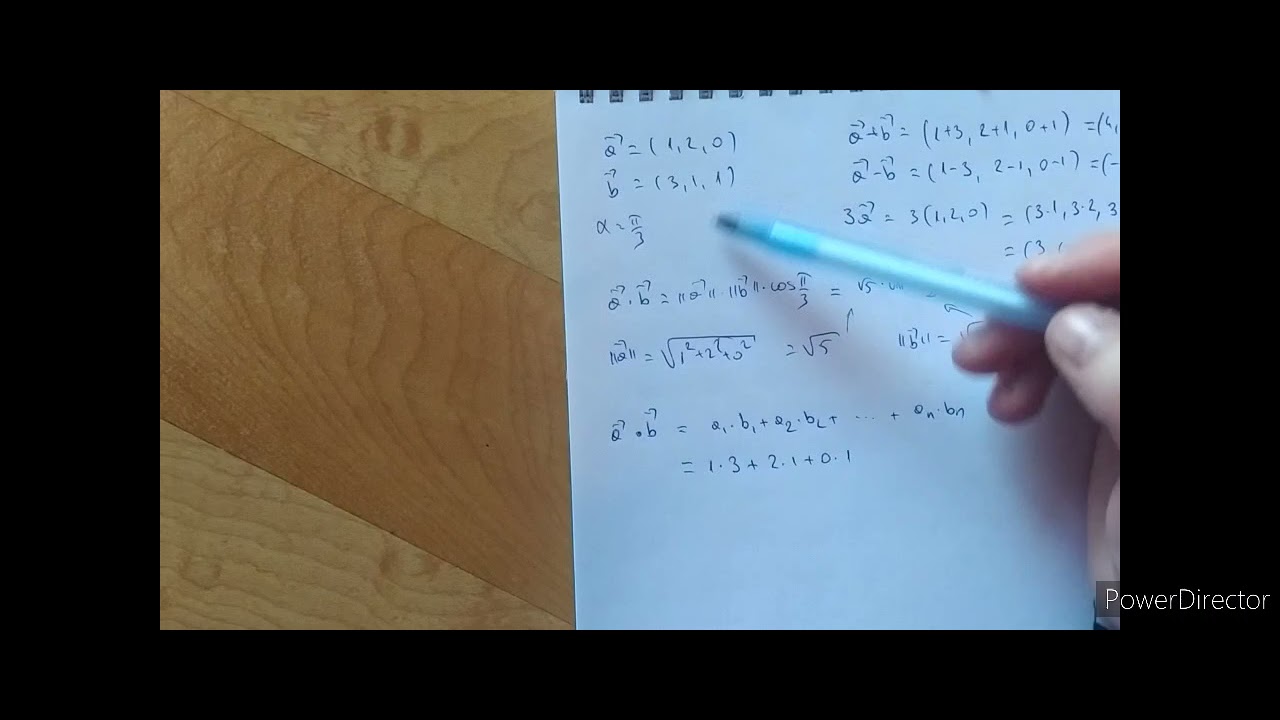 a⃗ = (1,2,0)
b⃗ = (3,1,1)
α = π/3
a⃗+b⃗ = (1+3, 2+1, 0+1) = (4,
a⃗-b⃗ = (1-3, 2-1, 0-1) = (-
3a⃗ = 3(1,2,0) = (3·1, 3·2, 3
= (3
a⃗·b⃗ = ||a⃗||·||b⃗||·cos π/3 = √5·
||a⃗|| = √1²+2²+0² = √5
||b⃗|| = √
a⃗·b⃗ = a₁·b₁+a₂·b₂+ ... + aₙ·bₙ
= 1·3+2·1+0·1
PowerDirector